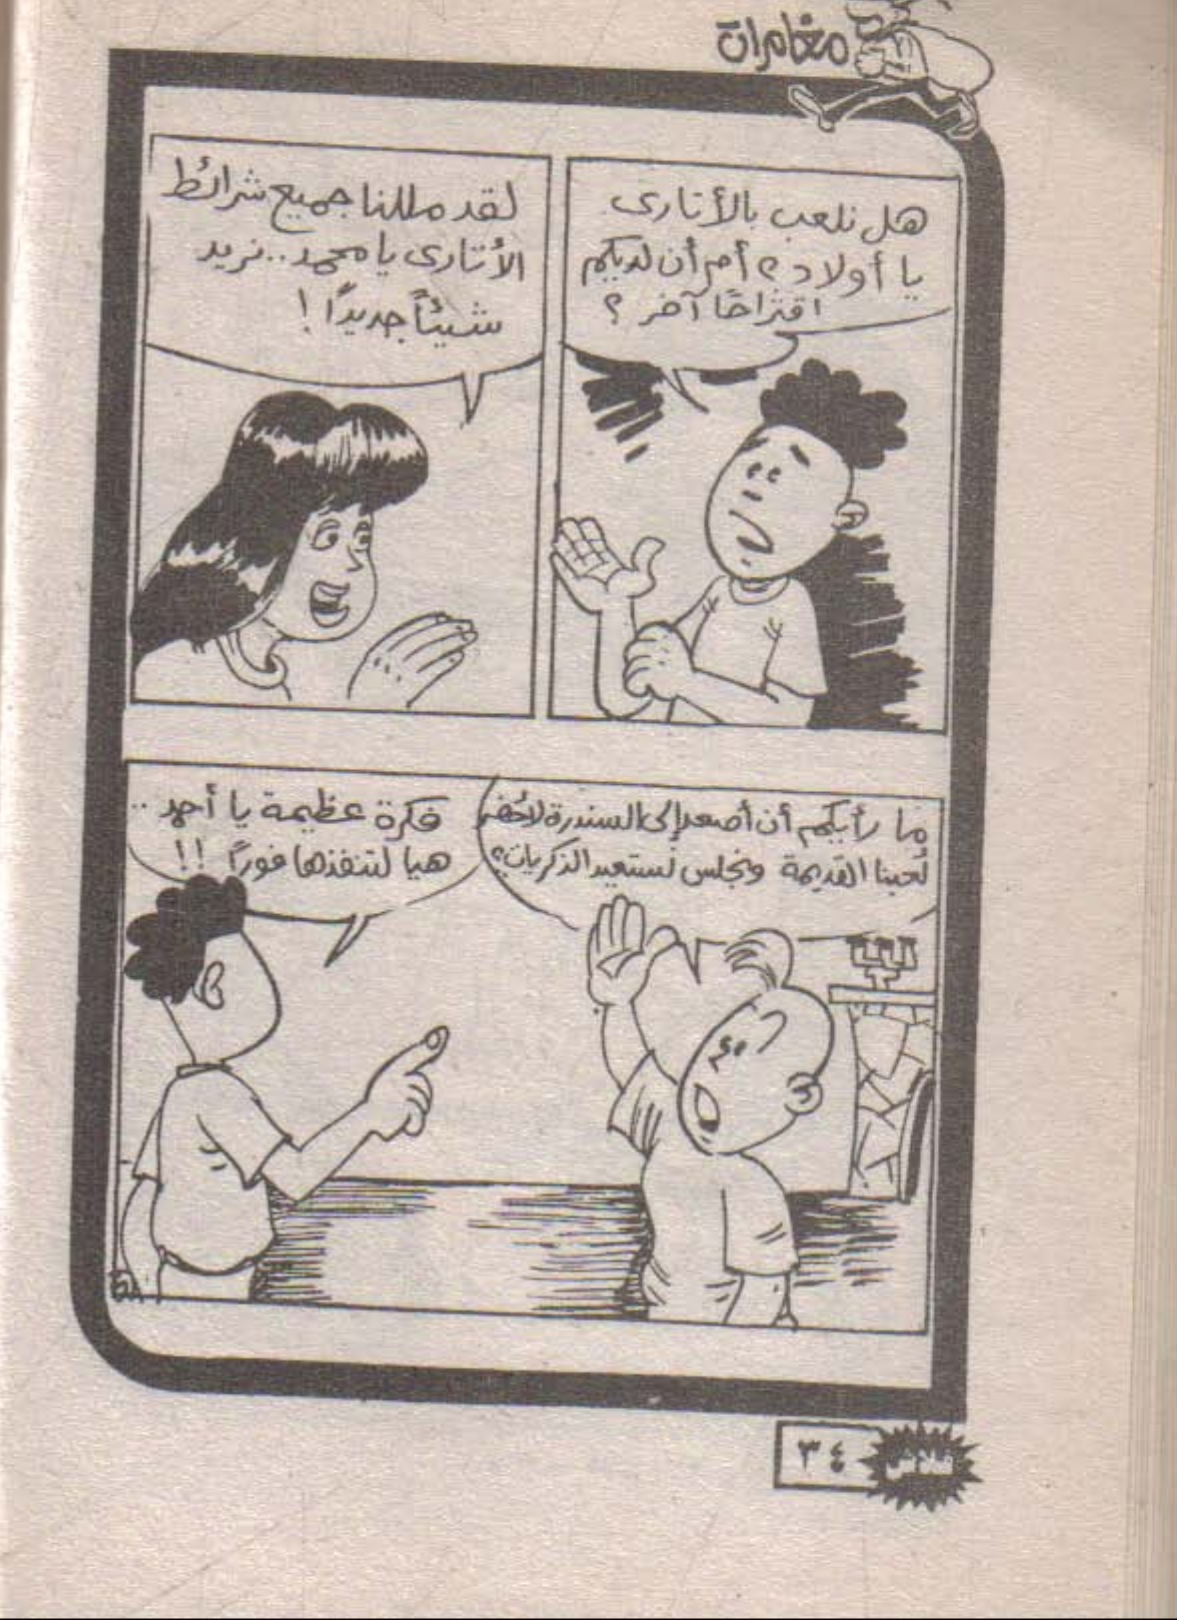 مغامرات
هل نلعب بالأتارى
يا أولاد ؟ أم أن لديكم
اقتراحًا آخر ؟
لقد مللنا جميع شرائط
الأتارى يا محمد .. نريد
شيئاً جديدًا !
ما رأيكم أن أصعد إلى السندرة لأحضر
لعبنا القديمة ونجلس نستعيد الذكريات ؟
فكرة عظيمة يا أحمد ..
هيا لننفذها فورًا !!
٣٤
فلاش